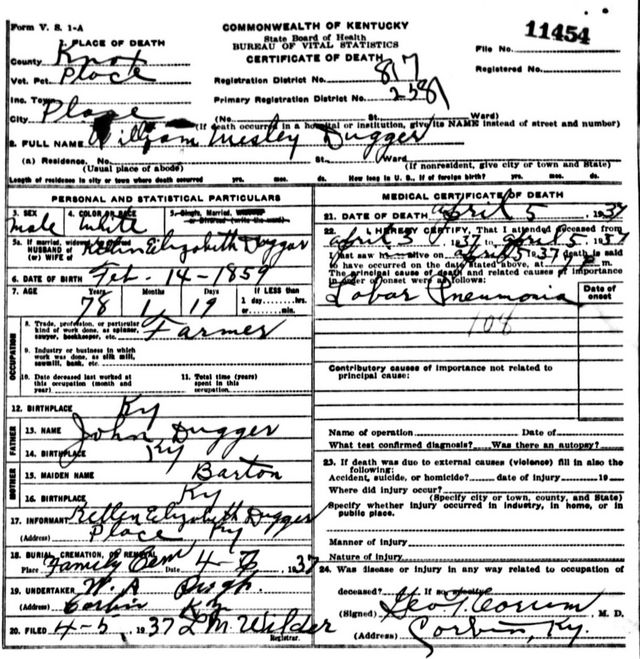 Form V. S. 1-A
COMMONWEALTH OF KENTUCKY
State Board of Health
BUREAU OF VITAL STATISTICS
CERTIFICATE OF DEATH
File No. 11454
Registered No.
1. PLACE OF DEATH
County Knox
Vot. Pct. Place
Inc. Town
City Place
Registration District No. 817
Primary Registration District No. 2381
(No. St. Ward)
(If death occurred in a hospital or institution, give its NAME instead of street and number)
2. FULL NAME William Wesley Dugger
(a) Residence. No. St. Ward
(Usual place of abode) (If nonresident, give city or town and State)
Length of residence in city or town where death occurred yrs. mos. ds. How long in U. S., if of foreign birth? yrs. mos. ds.
PERSONAL AND STATISTICAL PARTICULARS
3. SEX 4. COLOR OR RACE 5. Single, Married, Widowed
or Divorced (write the word)
male White
5a. If married, widowed, or divorced
HUSBAND of
(or) WIFE of Elizabeth Duggar
6. DATE OF BIRTH Feb. 14-1859
7. AGE Years Months Days If LESS than
1 day hrs.
or min.
78 1 19
OCCUPATION
8. Trade, profession, or particular
kind of work done, as spinner,
sawyer, bookkeeper, etc. Farmer
9. Industry or business in which
work was done, as silk mill,
sawmill, bank, etc.
10. Date deceased last worked at
this occupation (month and
year)
11. Total time (years)
spent in this
occupation
12. BIRTHPLACE Ky
FATHER
13. NAME John Dugger
14. BIRTHPLACE Ky
MOTHER
15. MAIDEN NAME Barton
16. BIRTHPLACE Ky
17. INFORMANT Elizabeth Dugger
(Address) Place, Ky
18. BURIAL, CREMATION, OR REMOVAL
Place Family Cem Date 4-6 1937
19. UNDERTAKER W. A
(Address) Corbin Ky
20. FILED 4-5 1937 L M Wilder
Registrar.
MEDICAL CERTIFICATE OF DEATH
21. DATE OF DEATH April 5 1937
22. I HEREBY CERTIFY, That I attended deceased from
April 3 1937 to April 5 1937
I last saw h alive on April 5 1937 death is said
to have occurred on the date stated above, at m.
The principal cause of death and related causes of importance
in order of onset were as follows:
Date of
onset
Lobar Pneumonia
108
Contributory causes of importance not related to
principal cause:
Name of operation Date of
What test confirmed diagnosis? Was there an autopsy?
23. If death was due to external causes (violence) fill in also the
following:
Accident, suicide, or homicide? date of injury 19
Where did injury occur?
(Specify city or town, county, and State)
Specify whether injury occurred in industry, in home, or in
public place.
Manner of injury
Nature of injury
24. Was disease or injury in any way related to occupation of
deceased? If so specify
(Signed) Geo T. Corum M. D.
(Address) Corbin, Ky.